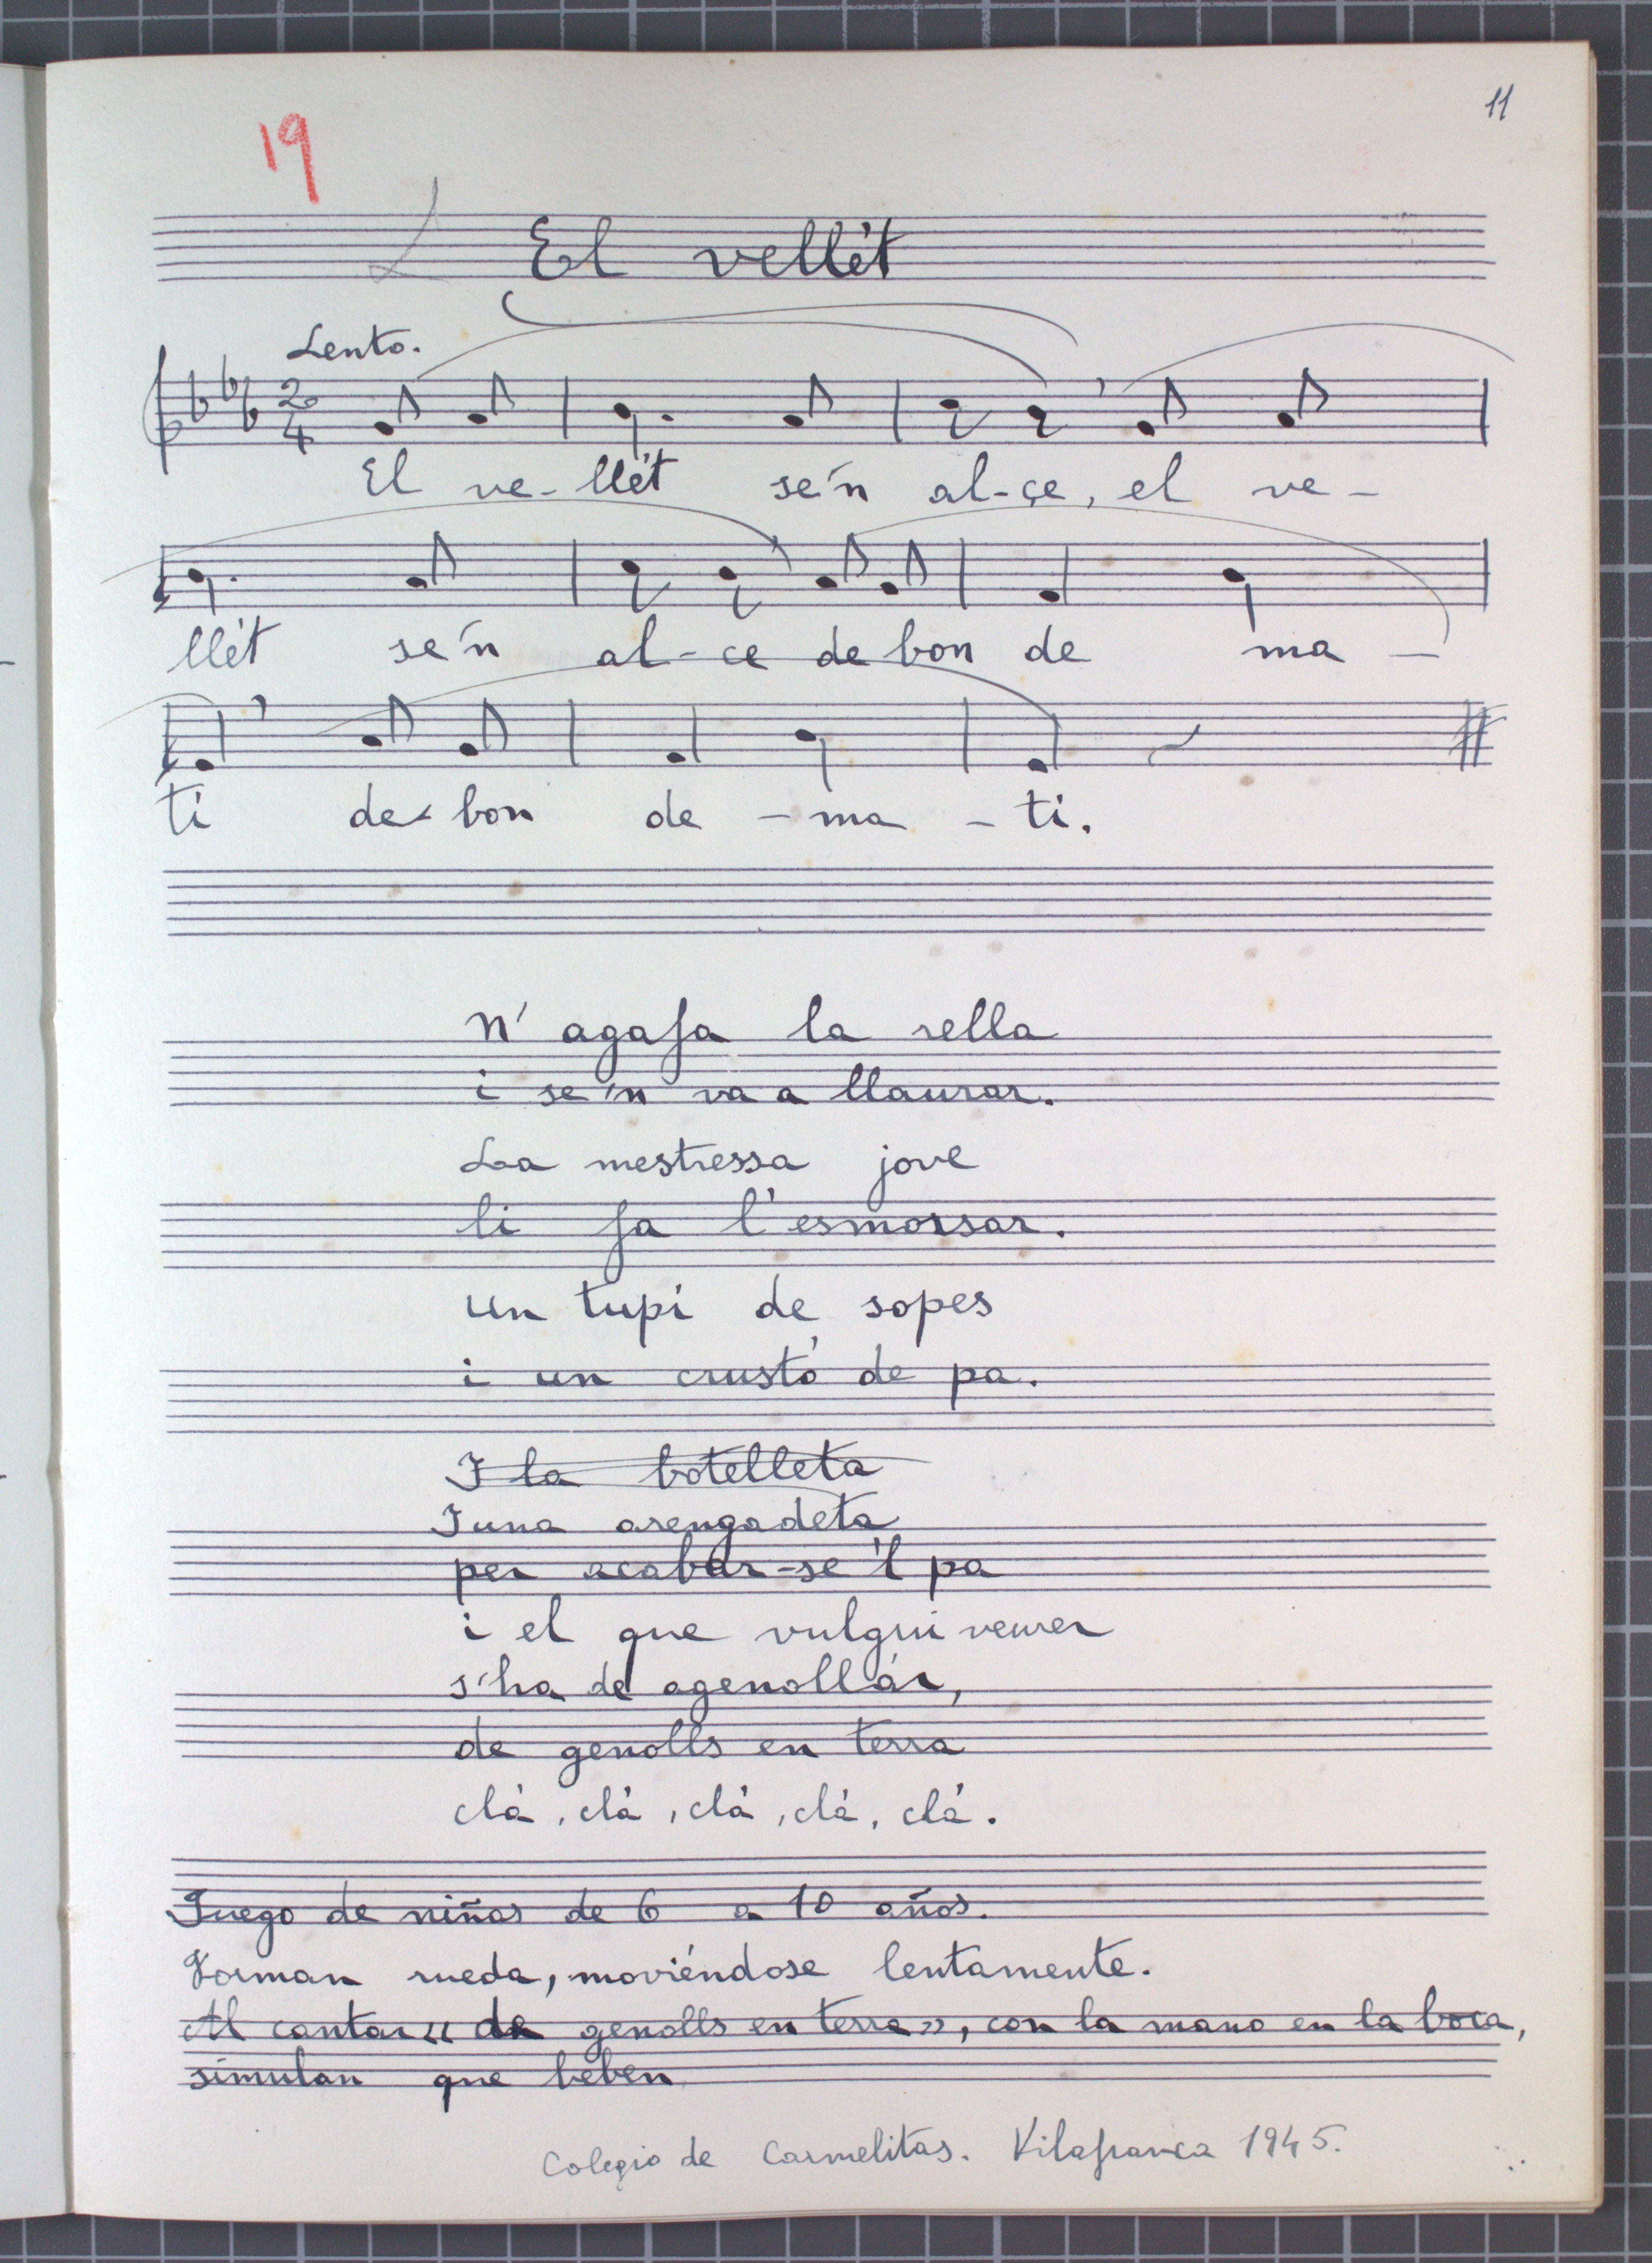 11
19
El vellét
Lento.
2
4
El ve-llét se'n al-çe, el ve-
llét se'n al-ce de bon de ma-
ti de-bon de-ma-ti.
N'agafa la rella
i se'n va a llaurar.
La mestressa jove
li fa l'esmorsar.
un tupí de sopes
i un crustó de pa.
I la botelleta
I una arengadeta
per acabar-se'l pa
i el que vulgui veurer
s'ha de agenollár,
de genolls en terra
clá, clá, clá, clá, clá.
Juego de niñas de 6 a 10 años.
Forman rueda, moviéndose lentamente.
Al cantar « de genolls en terra», con la mano en la boca,
simulan que beben
Colegio de Carmelitas. Vilafranca 1945.